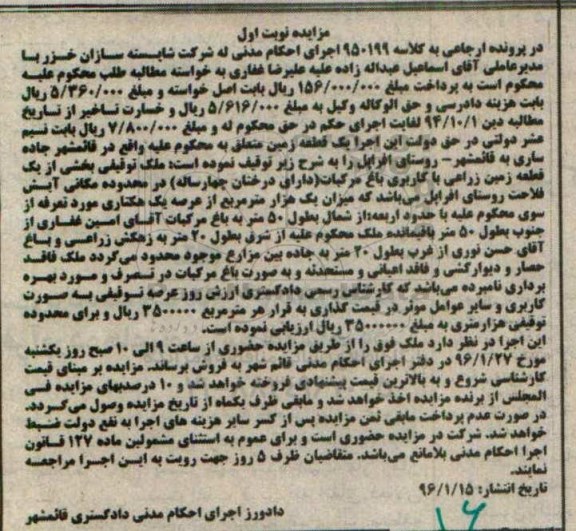 مزایده نوبت اول
در پرونده ارجاعی به کلاسه ۹۵۰۱۹۹ اجرای احکام مدنی له شرکت شایسته سازان خزر با
مدیرعاملی آقای اسماعیل عبداله زاده علیه علیرضا غفاری به خواسته مطالبه طلب محکوم علیه
محکوم است به پرداخت مبلغ ۱۵۶/۰۰۰/۰۰۰ ریال بابت اصل خواسته و مبلغ ۵/۳۶۰/۰۰۰ ریال
بابت هزینه دادرسی و حق الوکاله وکیل به مبلغ ۵/۶۱۶/۰۰۰ ریال و خسارت تاخیر از تاریخ
مطالبه دین ۹۴/۱۰/۱ لغایت اجرای حکم در حق محکوم له و مبلغ ۷/۸۰۰/۰۰۰ ریال بابت نیم
عشر دولتی در حق دولت این اجرا یک قطعه زمین متعلق به محکوم علیه واقع در قائمشهر جاده
ساری به قائمشهر – روستای افراپل را به شرح زیر توقیف نموده است: ملک توقیفی بخشی از یک
قطعه زمین زراعی با کاربری باغ مرکبات(دارای درختان چهارساله) در محدوده مکانی آیش
فلاحت روستای افراپل می‌باشد که میزان یک هزار مترمربع از عرصه یک هکتاری مورد تعرفه از
سوی محکوم علیه با حدود اربعه:از شمال بطول ۵۰ متر به باغ مرکبات آقای امین غفاری از
جنوب بطول ۵۰ متر باقیمانده ملک محکوم علیه از شرق بطول ۲۰ متر به زهکش زراعی و باغ
آقای حسن نوری از غرب بطول ۲۰ متر به جاده بین مزارع موجود محدود می‌گردد ملک فاقد
حصار و دیوارکشی و فاقد اعیانی و مستحدثه و به صورت باغ مرکبات در تصرف و مورد بهره
برداری نامبرده می‌باشد که کارشناس رسمی دادگستری ارزش روز عرصه توقیفی به صورت
کاربری و سایر عوامل موثر در قیمت گذاری به قرار هر مترمربع ۳۵۰۰۰۰۰ ریال و برای محدوده
توقیفی هزارمتری به مبلغ ۳۵۰۰۰۰۰۰ ریال ارزیابی نموده است.
این اجرا در نظر دارد ملک فوق را از طریق مزایده حضوری از ساعت ۹ الی ۱۰ صبح روز یکشنبه
مورخ ۹۶/۱/۲۷ در دفتر اجرای احکام مدنی قائم شهر به فروش برساند. مزایده بر مبنای قیمت
کارشناسی شروع و به بالاترین قیمت پیشنهادی فروخته خواهد شد و ۱۰ درصدبهای مزایده فی
المجلس از برنده مزایده اخذ خواهد شد و مابقی ظرف یکماه از تاریخ مزایده وصول می‌گردد.
در صورت عدم پرداخت مابقی ثمن مزایده پس از کسر سایر هزینه های اجرا به نفع دولت ضبط
خواهد شد. شرکت در مزایده حضوری است و برای عموم به استثنای مشمولین ماده ۱۲۷ قانون
اجرا احکام مدنی بلامانع می‌باشد. متقاضیان ظرف ۵ روز جهت رویت به این اجرا مراجعه
نمایند.
تاریخ انتشار: ۹۶/۱/۱۵
دادورز اجرای احکام مدنی دادگستری قائمشهر
۱۶